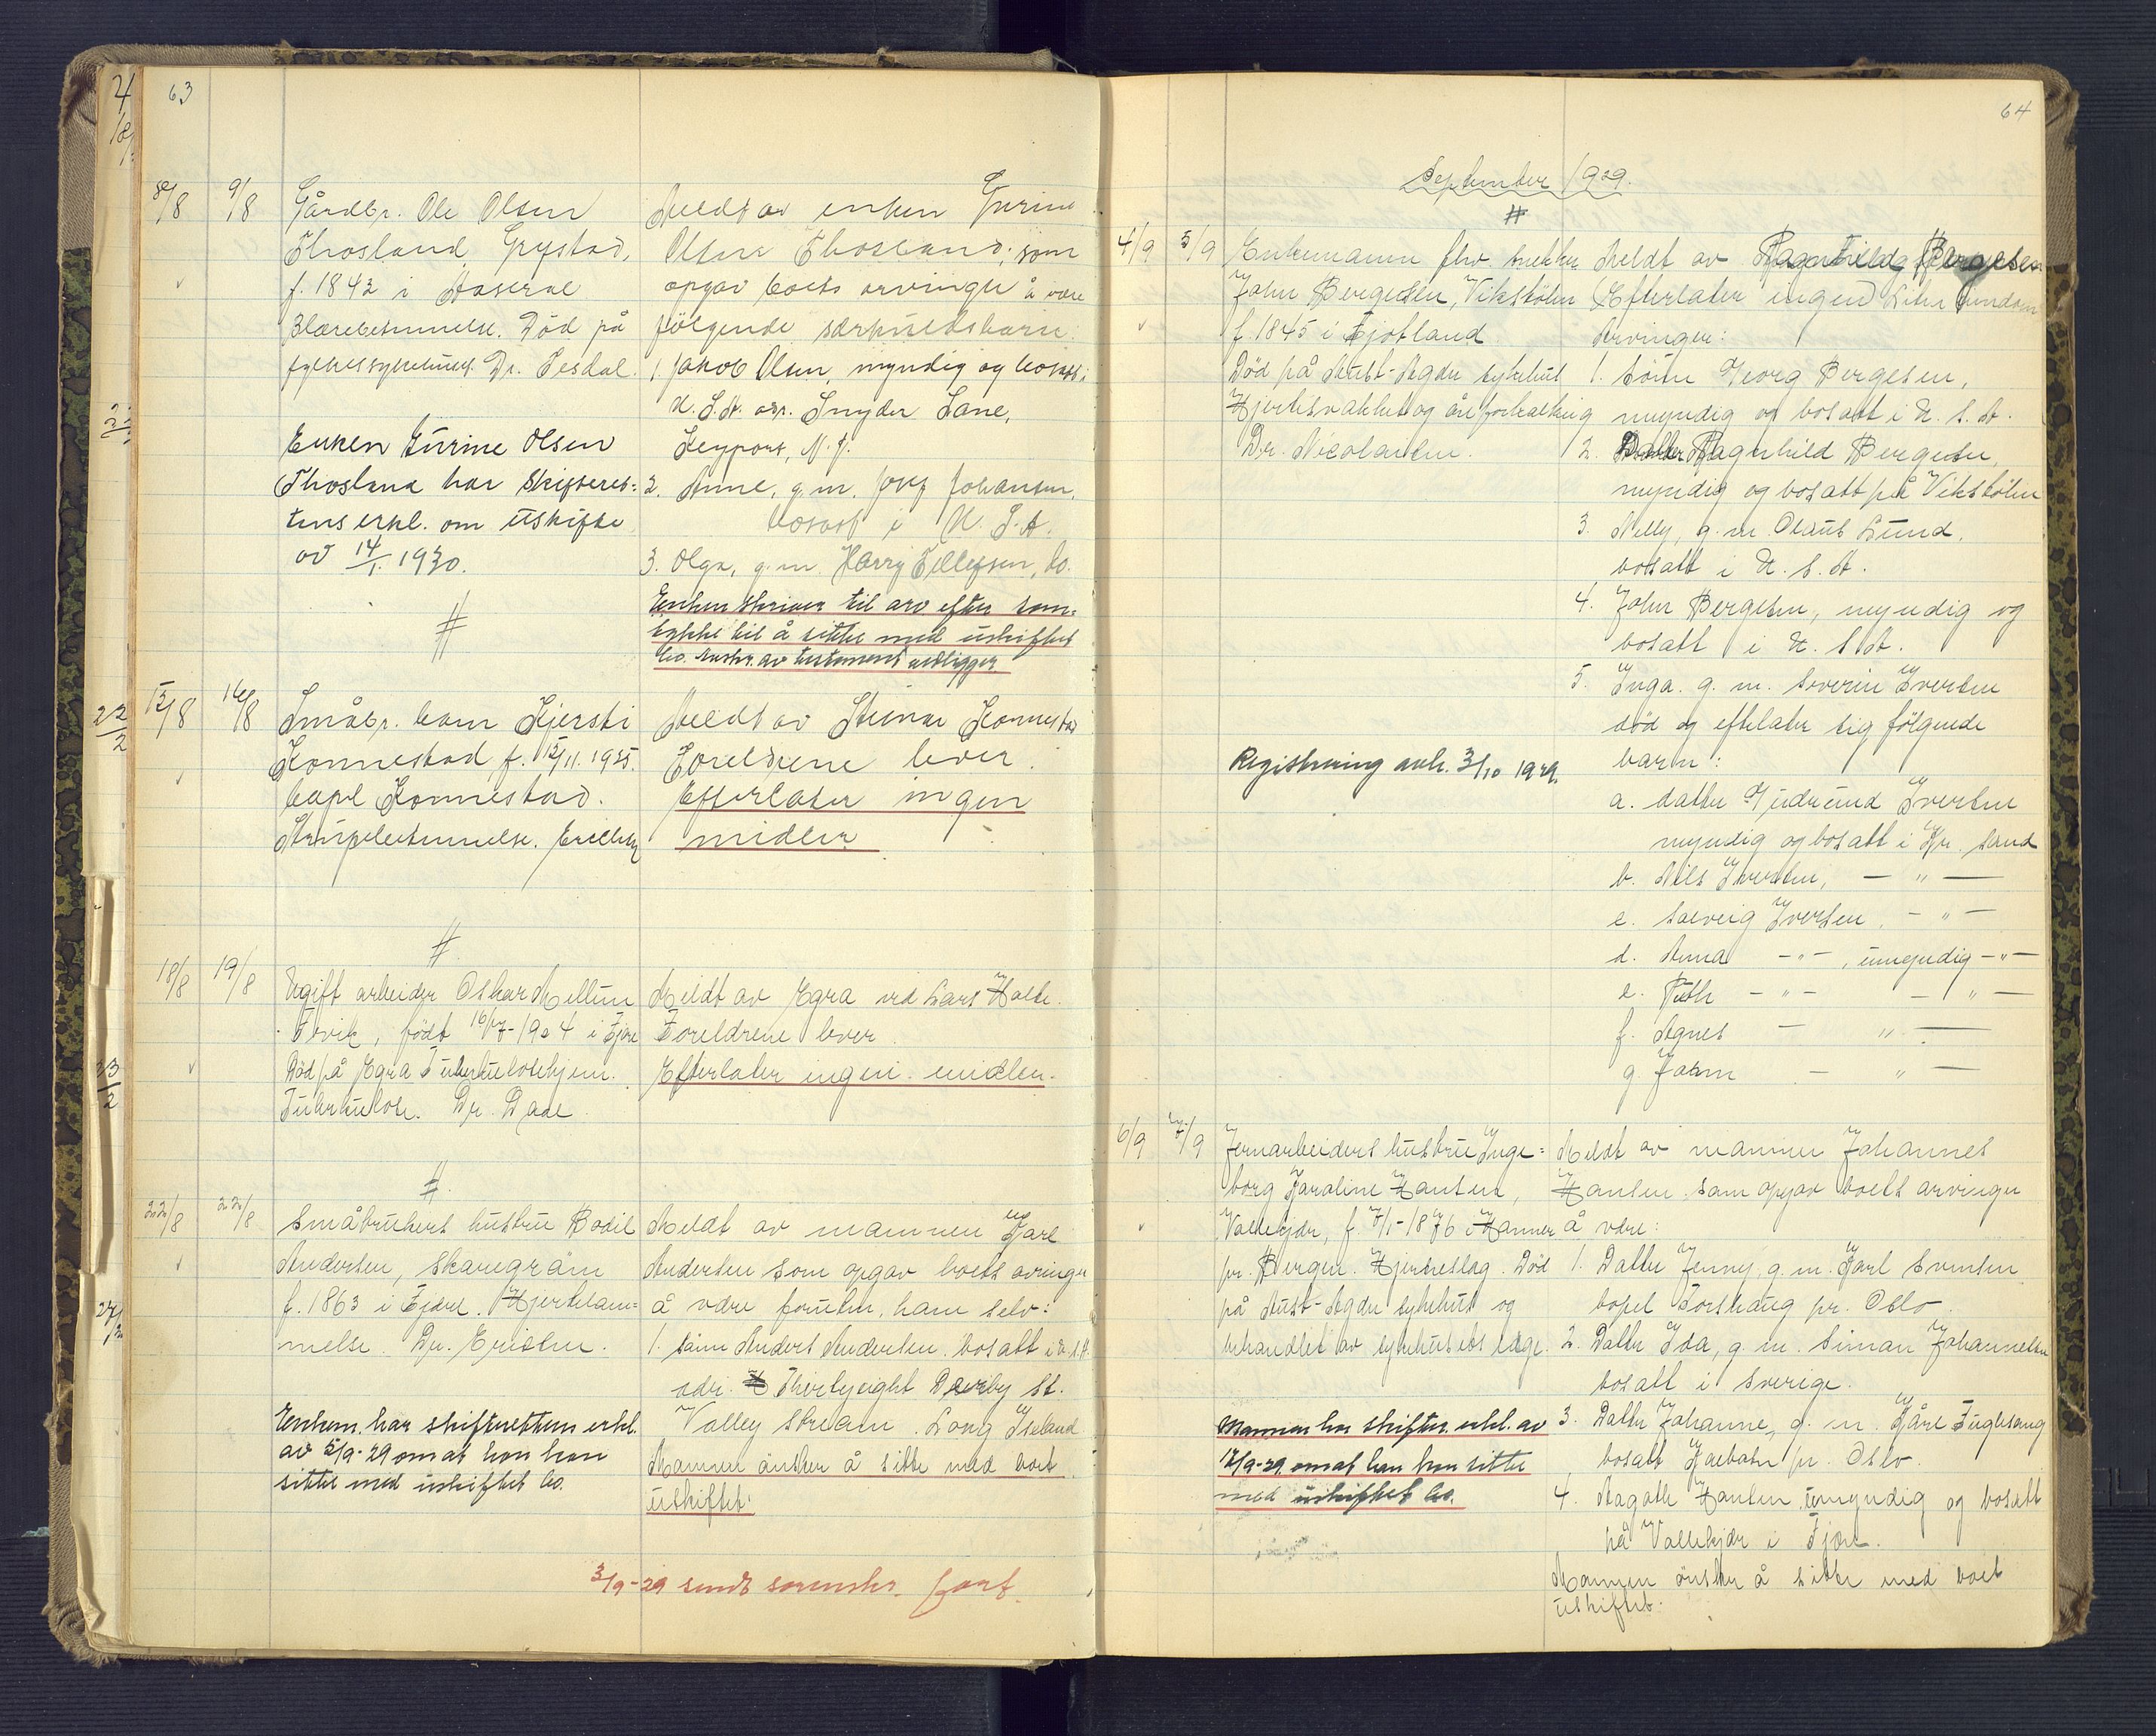 63
8/8 9/8
Gårdbr. Ole Olsen
Throsland, Grefstad,
f. 1842 i Åseral
Blærebetennelse. Død på
fylkessykehuset. Dr. Tesdal.
Enken Gurine Olsen
Throsland har skifteret-
tens erkl. om uskifte
av 14/1. 1930.
#
Meldt av enken Gurine
Olsen Throsland, som
opgav boets arvinger å være
følgende særkullsbarn:
1. Jakob Olsen, myndig og bosatt i
U.S.A. adr. Snyder Lane,
Keyport, N.J.
2. Anne, g.m. Johansen,
bosatt i U.S.A.
3. Olga, g.m. Harry Tellefsen, do.
Enken skriver til arv efter sam-
tykke til å sitte med uskiftet
bo. av testament vedligger
15/8 16/8
Småbr. barn Kjersti
Konnestad, f. 15/11. 1925.
bopl Konnestad.
Strupebetennelse. Erichsen
#
Meldt av Steinar Konnestad
Foreldrene lever.
Efterlater ingen
midler
18/8 19/8
Ugift arbeider Oskar Mellum
Fevik, født 16/7-1904 i Fjære
Død på Egra Tuberkulosehjem.
Tuberkulose. Dr. Daae
#
Meldt av Egra ved Lars Holte.
Foreldrene lever
Efterlater ingen midler.
22/8 22/8
Småbrukers hustru Bodil
Andersen, Skaregrøm
f. 1863 i Fjære. Hjertelam-
melse. Dr. Erichsen.
Enkem. har skifterettens erkl.
av 5/9-29 om at han kan
sitte med uskiftet bo.
Meldt av mannen Karl
Andersen som opgav boets arvinger
å være foruten ham selv:
1. sønn Anders Andersen. bosatt i U.S.A.
adr. Thirtyeight Derby St.
Valley Stream. Long Iseland
Mannen ønsker å sitte med boet
uskiftet.
3/9-29 sendt sorenskr. fort.
64
September 1929.
#
4/9 5/9
Enkemann fhv. snekker
John Bergesen, Vikskilen
f. 1845 i Fjotland
Død på Aust-Agder sykehus
Hjertesvakhet og åreforkalkning
Dr. Nicolaisen.
Registrering avh. 3/10 1929.
Meldt av Ragnhild Bergesen
Efterlater ingen eiendom
Arvinger:
1. Sønn Georg Bergesen,
myndig og bosatt i U.S.A.
2. Datter Ragnhild Bergesen,
myndig og bosatt på Vikskilen
3. Nelly, g.m. Olaus Lund,
bosatt i U.S.A.
4. John Bergesen, myndig og
bosatt i U.S.A.
5. Inga. g.m. Severin Iversen
død og efterlater sig følgende
barn:
a. datter Gudrund Iversen
myndig og bosatt i Kr.sand
b. Nils Iversen, — " —
c. Solveig Iversen, — " —
d. Anna — " —, umyndig — " —
e. Ruth — " — — " —
f. Agnes — " —
g. Form — " —
6/9 7/9
Jernarbeiders hustru Inge-
borg Karoline Hansen,
Vallekjær, f. 7/1-1876 i Hammer
pr. Bergen. Hjerteslag. Død
på Aust-Agder sykehus og
behandlet av sykehusets læge.
Mannen har skifter. erkl. av
12/9-29 om at han kan sitte
med uskiftet bo.
Meldt av mannen Johannes
Hansen som opgav boets arvinger
å være:
1. Datter Jenny, g.m. Karl Svensen
bopel Torshaug pr. Oslo
2. Datter Ida, g.m. Simon Johannesen
bosatt i Sverige.
3. Datter Johanne, g.m. Kåre Fuglesang
bosatt Kolbotn pr. Oslo.
4. Aagathe Hansen umyndig og bosatt
på Vallekjær i Fjære.
Mannen ønsker å sitte med boet
uskiftet.